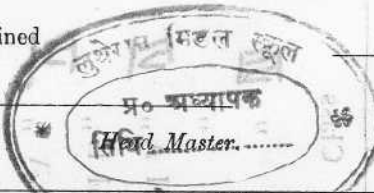 ined
लुथेरान मिडल स्कूल
प्र० अध्यापक
तिथि
Head Master.